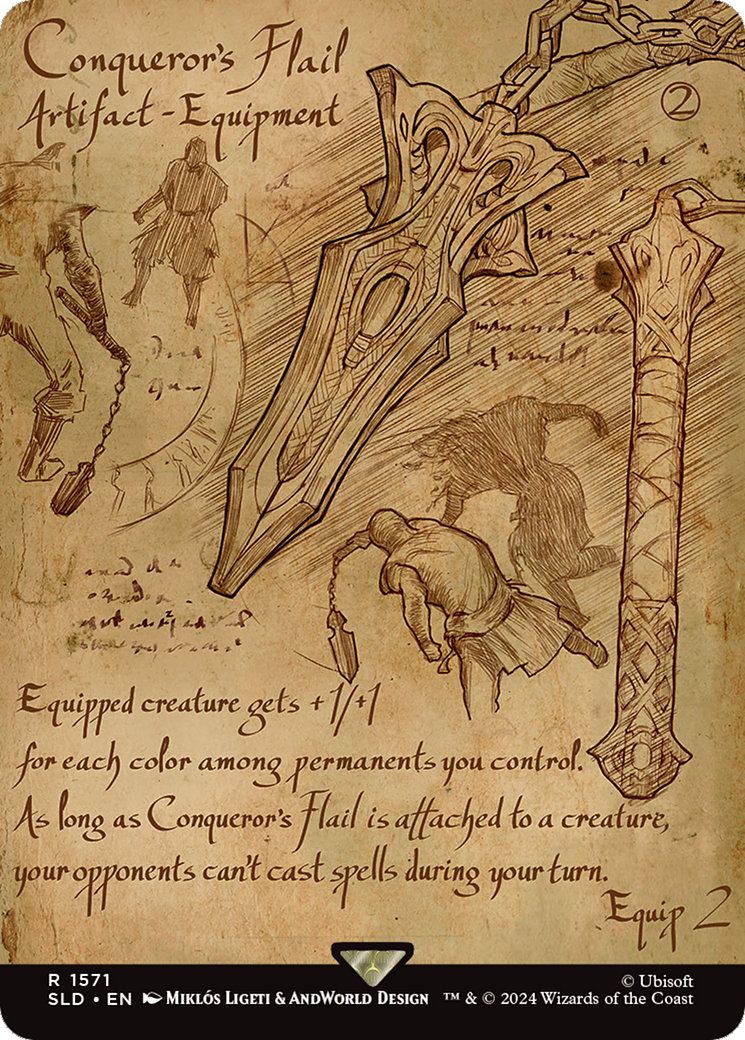 Conqueror's Flail
Artifact - Equipment
2
Equipped creature gets +1/+1
for each color among permanents you control.
As long as Conqueror's Flail is attached to a creature,
your opponents can't cast spells during your turn.
Equip 2
R 1571
SLD • EN Miklós Ligeti & AndWorld Design
™ & © 2024 Wizards of the Coast
© Ubisoft